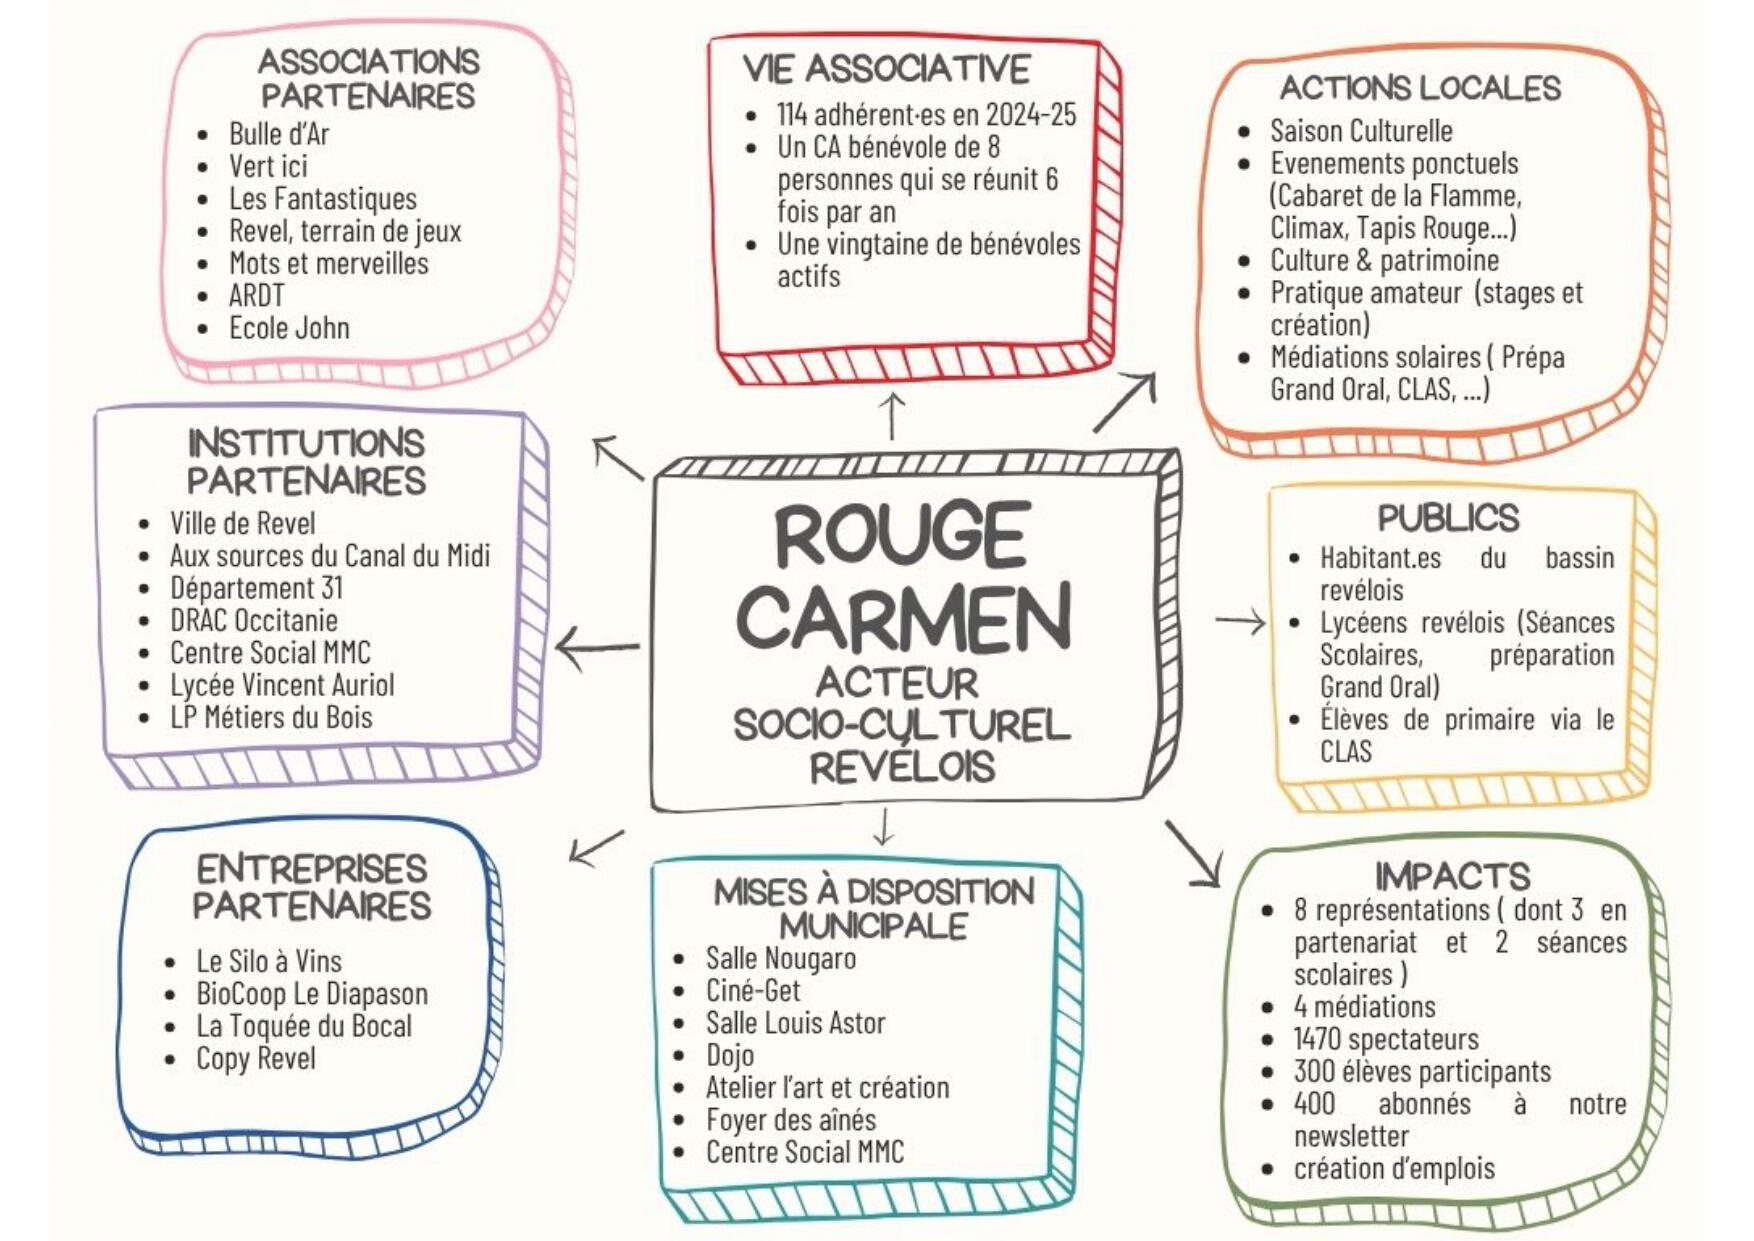 ASSOCIATIONS
PARTENAIRES
• Bulle d'Ar
• Vert ici
• Les Fantastiques
• Revel, terrain de jeux
• Mots et merveilles
• ARDT
• Ecole John
VIE ASSOCIATIVE
• 114 adhérent·es en 2024-25
• Un CA bénévole de 8
personnes qui se réunit 6
fois par an
• Une vingtaine de bénévoles
actifs
ACTIONS LOCALES
• Saison Culturelle
• Evenements ponctuels
(Cabaret de la Flamme,
Climax, Tapis Rouge...)
• Culture & patrimoine
• Pratique amateur (stages et
création)
• Médiations solaires ( Prépa
Grand Oral, CLAS, ...)
INSTITUTIONS
PARTENAIRES
• Ville de Revel
• Aux sources du Canal du Midi
• Département 31
• DRAC Occitanie
• Centre Social MMC
• Lycée Vincent Auriol
• LP Métiers du Bois
ROUGE
CARMEN
ACTEUR
SOCIO-CULTUREL
REVÉLOIS
PUBLICS
• Habitant.es du bassin
revélois
• Lycéens revélois (Séances
Scolaires, préparation
Grand Oral)
• Élèves de primaire via le
CLAS
ENTREPRISES
PARTENAIRES
• Le Silo à Vins
• BioCoop Le Diapason
• La Toquée du Bocal
• Copy Revel
MISES À DISPOSITION
MUNICIPALE
• Salle Nougaro
• Ciné-Get
• Salle Louis Astor
• Dojo
• Atelier l'art et création
• Foyer des aînés
• Centre Social MMC
IMPACTS
• 8 représentations ( dont 3 en
partenariat et 2 séances
scolaires )
• 4 médiations
• 1470 spectateurs
• 300 élèves participants
• 400 abonnés à notre
newsletter
• création d'emplois